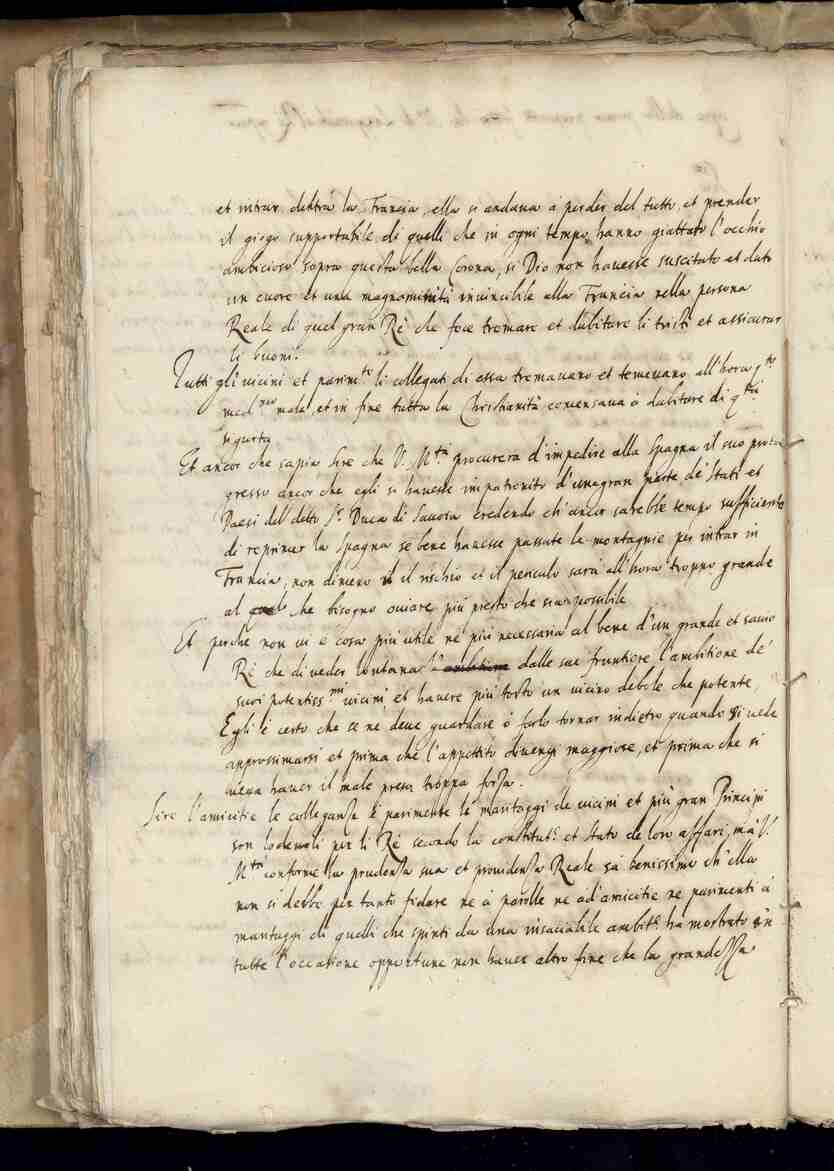 et intrar dentro la Francia, ella si andaua à perder del tutto, et prender
il giogo supportabile di quelli che in ogni tempo hanno giattato l'occhio
ambicioso sopra questa bella Corona, si Dio non hauesse suscitato et dato
un cuore et una magnanimità inuincibile alla Francia nella persona
Reale di quel gran Rè che fece tremare et dubitare li tristi et assicurar
li buoni.
Tutti gli uicini et parim.te li collegati di essa tremauano et temeuano all'hora q.to
med.mo male, et in fine tutta la Christianità comensaua à dubitare di q.sta
Et ancor che sapia Sire che V. M.tà procurerà d'impedire alla Spagna il suo pro
gresso ancor che egli si hauesse impatronito d'una gran parte de' Stati et
Paesi del detto S.r Duca di Sauoia credendo ch'ancor sarebbe tempo sufficiente
di reprimer la Spagna se bene hauesse passate le montagnie per intrar in
Francia, non dimeno il rischio et il periculo sarà all'hora troppo grande
al che bisogno ouiare più presto che sia possibile
Et perche non ui è cosa più utile nè più necessaria al bene d'un grande et sauio
Rè che di ueder lontana l'ambitione dalle sue fruntiere l'ambitione de'
suoi potentiss.mi uicini et hauere più tosto un uicino debole che potente,
Egli è certo che se ne deue guardare ò farlo tornar indietro quando si uede
approssimarsi et prima che l'appettito diuengi maggiore, et prima che si
ueda hauer il male preso troppa forsa.
Sire l'amicitie le colleganse et parimente le maritaggi de uicini et più gran Principi
son lodeuoli per li Rè secondo la constitut.e et stato de loro affari, mà V.
M.tà conforme la prudensa sua et prouidensa Reale sà benissimo ch'ella
non si debbe per tanto fidare ne à parolle ne ad'amicitie ne parimenti à
maritaggi di quelli che spinti da una insaciabile ambit.e hà mostrato in
tutte l'occasione opportune non hauer altro fine che la grandessa